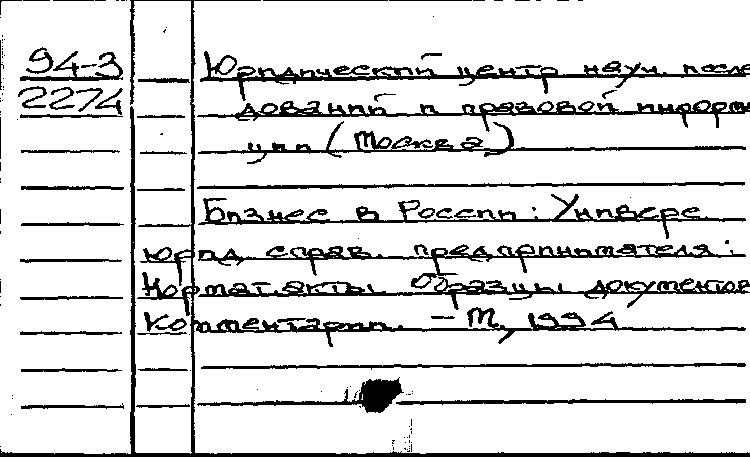 94-3 Юридический центр науч. иссле
2274 дований и правовой информа
ции (Москва)
Бизнес в России: Универс.
юрид. справ. предпринимателя:
Нормат. акты. Образцы документов
Комментарии. - М., 1994